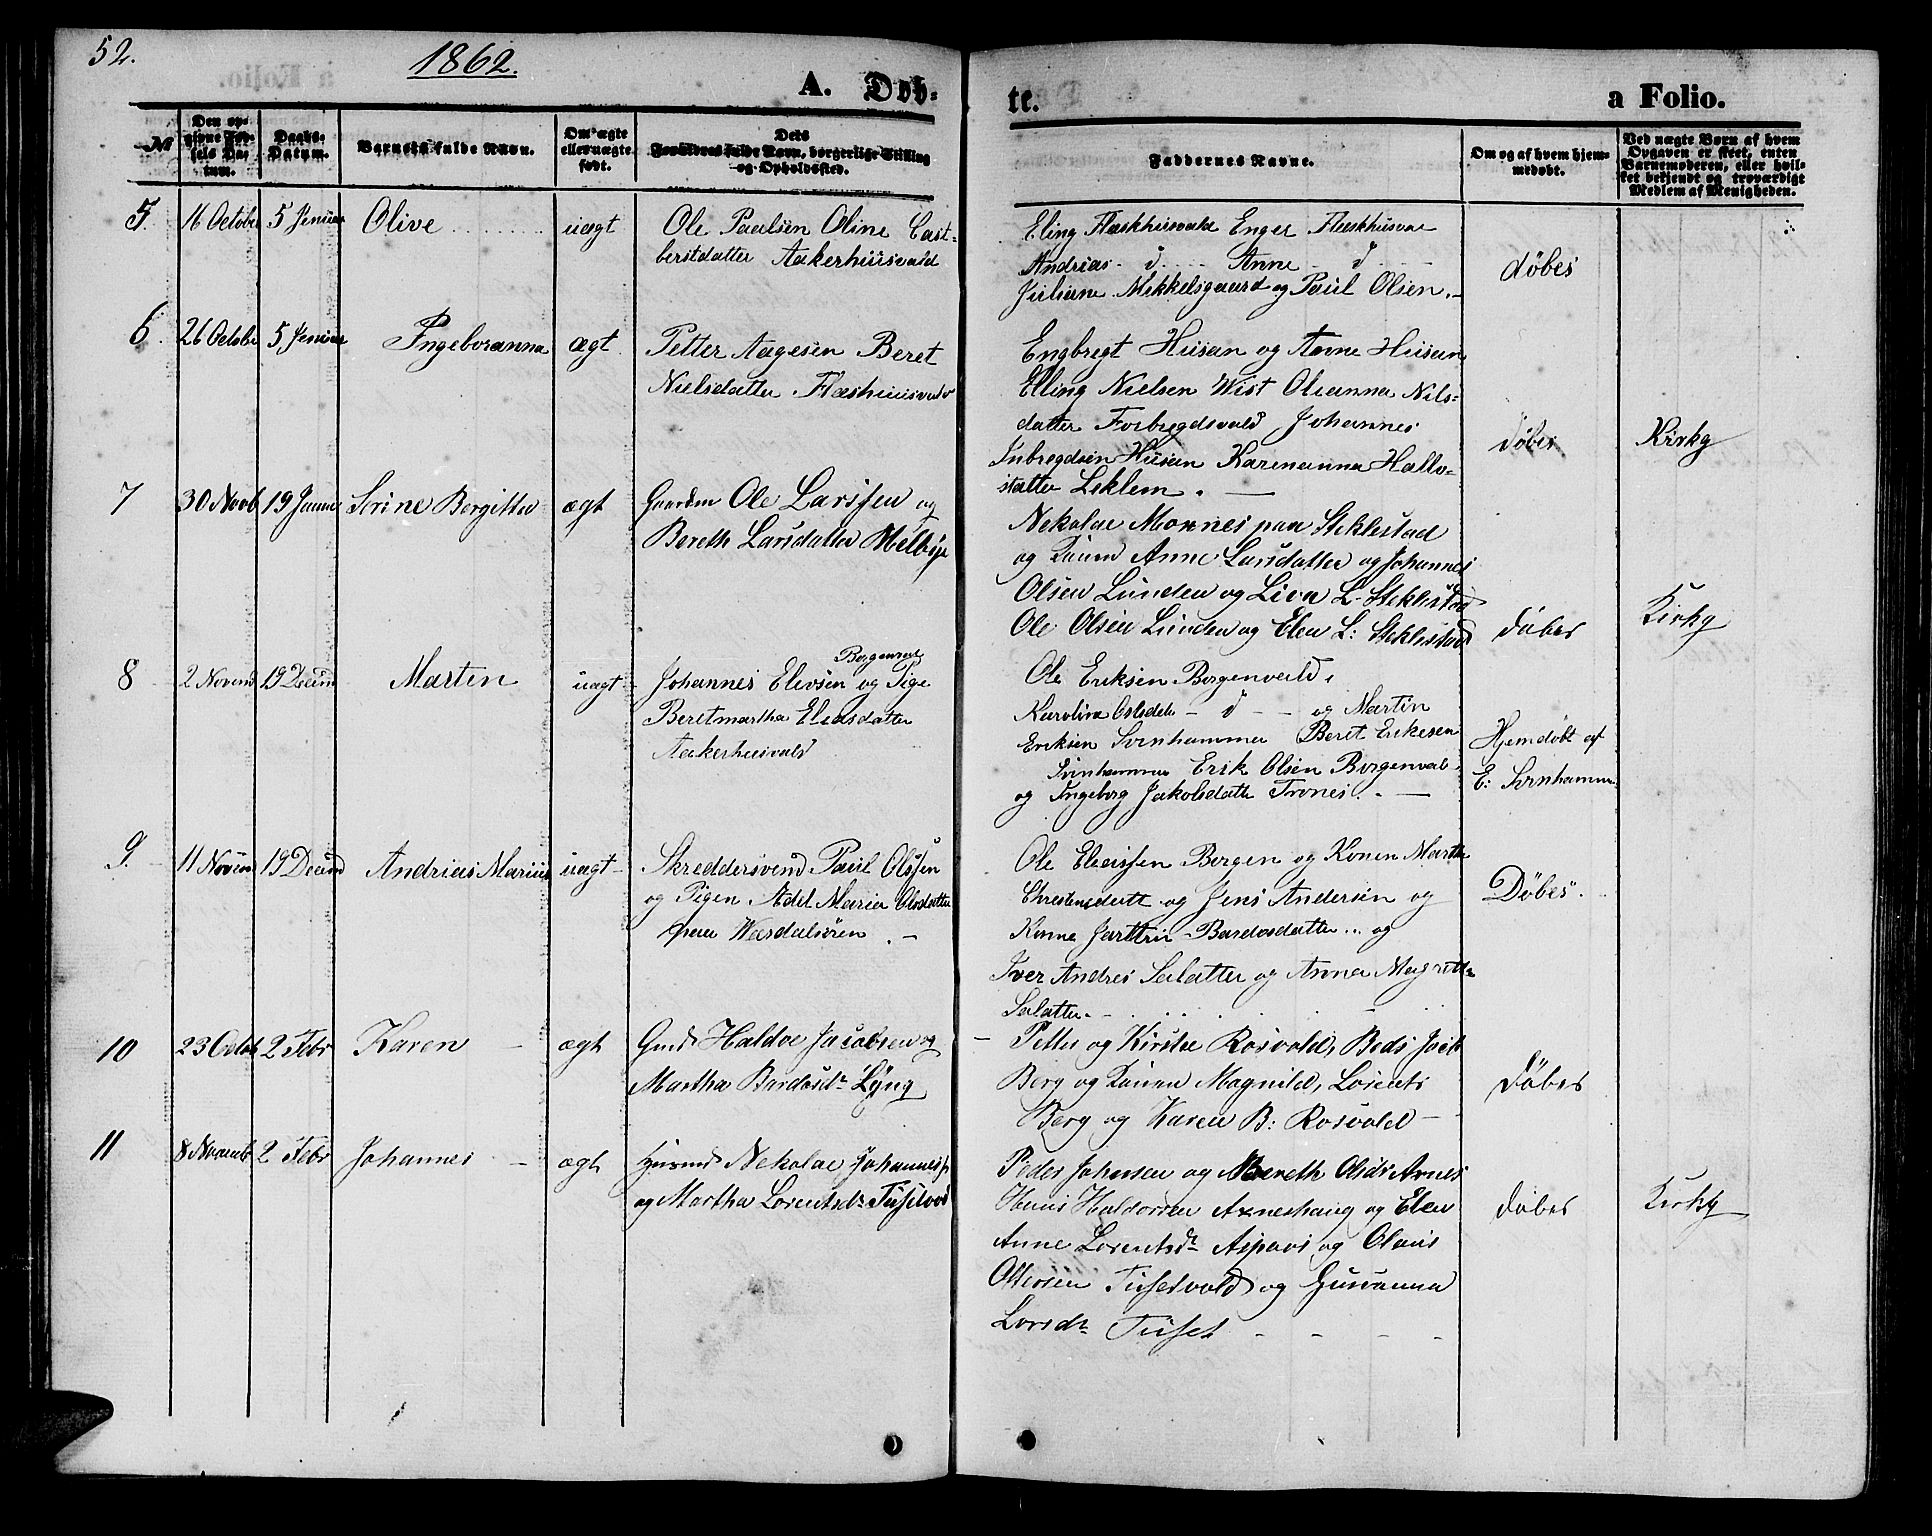 52.
1862.
A. Døb-
te.
a Folio.
№
Den op-
givne Fød-
sels Da-
tum.
Daabs-
Datum.
Barnets fulde Navn.
Om ægte
eller uægte
født.
Dets
Forældres fulde Navn, borgerlige Stilling
og Opholdssted.
Faddernes Navne.
Om og af hvem hjem-
medøbt.
Ved uægte Børn af hvem
Opgaven er skeet, enten
Barnemoderen, eller hvil-
ket bekjendt og troværdigt
Medlem af Menigheden.
5. 16 Octobe 5 Januar Olive uægt Ole Paulsen Oline
berstdatter Aakerhuusvald
Eling Flæskhusvald Enger Fluskhusvae
Andrias d Anne d
Juliane Mikkelsgaard og Paul Olsen.
døbes
6. 26 Octobe 5 Januar Ingeboranna ægt Petter Aagesen Beret
Nielsdatter
Engbregt Husan og Anne Husan
Elling Nielsen Wist Oleanna Nils-
datter Forbregdsvald Johannes
Inbregdsen Husan Karenanna Hallv-
statter Leklem.
døbes Kirkg
7 30 Novb 19 Janua Serine Bergitta ægt Gaardm Ole Larssen og
Bereth Larsdatter Melbye
Nekolae Monnes paa Steklestad
og Anne Larsdatter og Johannes
Olsen Lunden og Livn L. Steklestad
Ole Olsen Lunden og Elen L: Steklestad
døbes Kirkg
8 2 Novemb 19 Martin uægt Johannes Elevsen og Pige
Beretmartha Eliasdatter
Aakerhusvald
Ole Eriksen Borgenvald,
Karolina Olsdatr d og Martin
Eriksen Svinhammer Beret Eriksen
Svinhammer Erik Olsen Borgenvald
og Ingeborg Jakobsdattr Trones.
Hjemdøbt af
E: Svinhammer
9. 11 Novem 19 Andrias Marius uægt Skreddersvend Paul Olssen
og Pigen Adel Maria Olsdatter
paa Wærdalsøren
Ole Eleassen Borgen og Konen Martha
Chrestensdatt og Jens Andersen og
Konne Bardosdatter og
Iver Andres Salatter og Anna Magrette
Salatter
Døbes
10 23 Octob 2 Febr Karen ægt Gmd Haldoe Jacobsen og
Martha Bardosdr Lyng
Petter og Kirstee Rosvold,
Berg og Magnild, Lorents
Berg og Karen B: Rosvold
døbes
11 8 Novemb 2 Febr Johannes ægt Huusmd Nekolae Johannes
og Martha Lorentsdr
Peder Johnsen og Bereth Olsdr Aanes
Haldorsen Axneshaug og Elen
Anne Lorentsdr Aspaas og Olaus
Ottersen Tusetvold og Gurianna
Larsdr Tuset
døbes Kirkg